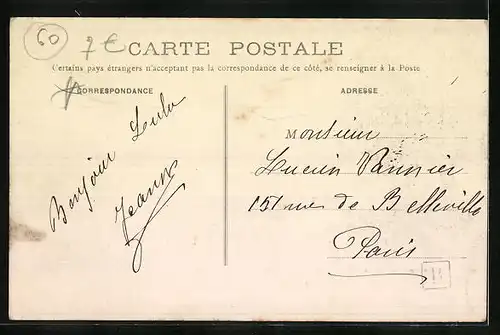 60
7€
CARTE POSTALE
Certains pays étrangers n'acceptant pas la correspondance de ce côté, se renseigner à la Poste
CORRESPONDANCE
ADRESSE
Bonjour Lulu
Jeanne
Monsieur
Lucien Vannier
151 rue de Belleville
Paris